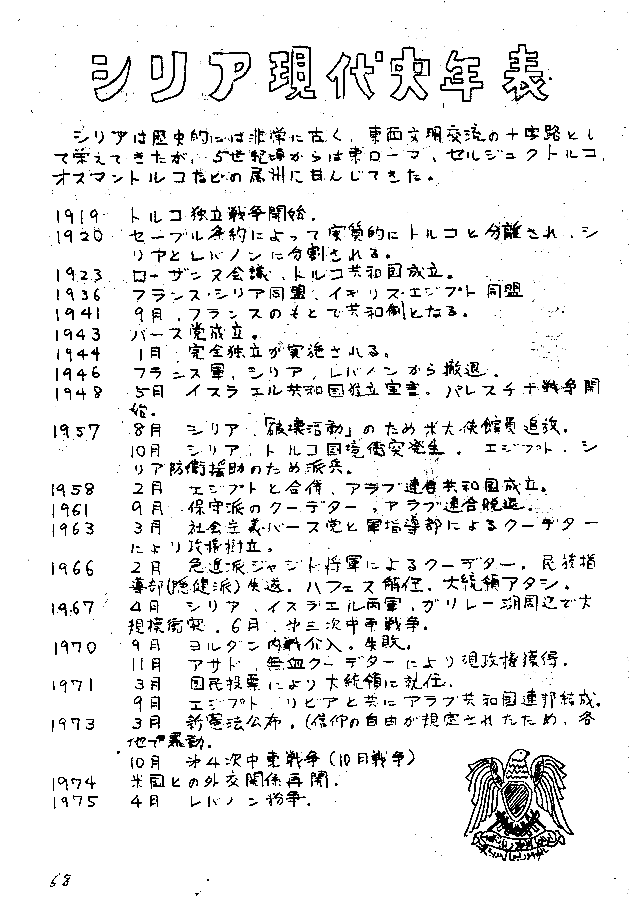 シリア現代史年表
シリアは歴史的には非常に古く、東西文明交流の十字路とし
て栄えてきたが、5世紀頃からは東ローマ、セルジュクトルコ、
オスマントルコなどの属州に甘んじてきた。
1919 トルコ独立戦争開始。
1920 セーブル条約によって実質的にトルコと分離され、シ
リアとレバノンに分割される。
1923 ローザンヌ会議、トルコ共和国成立。
1936 フランス・シリア同盟、イギリス・エジプト同盟
1941 9月、フランスのもとで共和制となる。
1943 バース党成立。
1944 1月、完全独立が実施される。
1946 フランス軍、シリア、レバノンから撤退。
1948 5月 イスラエル共和国独立宣言。パレスチナ戦争開
始。
1957 8月 シリア、「破壊活動」のため米大使館員追放。
10月 シリア、トルコ国境衝突発生。エジプト、シ
リア防衛援助のため派兵。
1958 2月 エジプトと合併、アラブ連合共和国成立。
1961 9月 保守派のクーデター、アラブ連合脱退。
1963 3月 社会主義バース党と軍指導部によるクーデター
により政権樹立。
1966 2月 急進派ジャシド将軍によるクーデター。民族指
導部(穏健派)失遂。ハフェス解任。大統領アタシ。
1967 4月 シリア、イスラエル両軍、ガリレー湖周辺で大
規模衝突。6月、第三次中東戦争。
1970 9月 ヨルダン内戦介入。失敗。
11月 アサド、無血クーデターにより現政権獲得。
1971 3月 国民投票により大統領に就任。
9月 エジプト、リビアと共にアラブ共和国連邦結成。
1973 3月 新憲法公布。(信仰の自由が規定されたため、各
地で暴動。
10月 第4次中東戦争(10月戦争)
1974 米国との外交関係再開。
1975 4月 レバノン紛争。
68